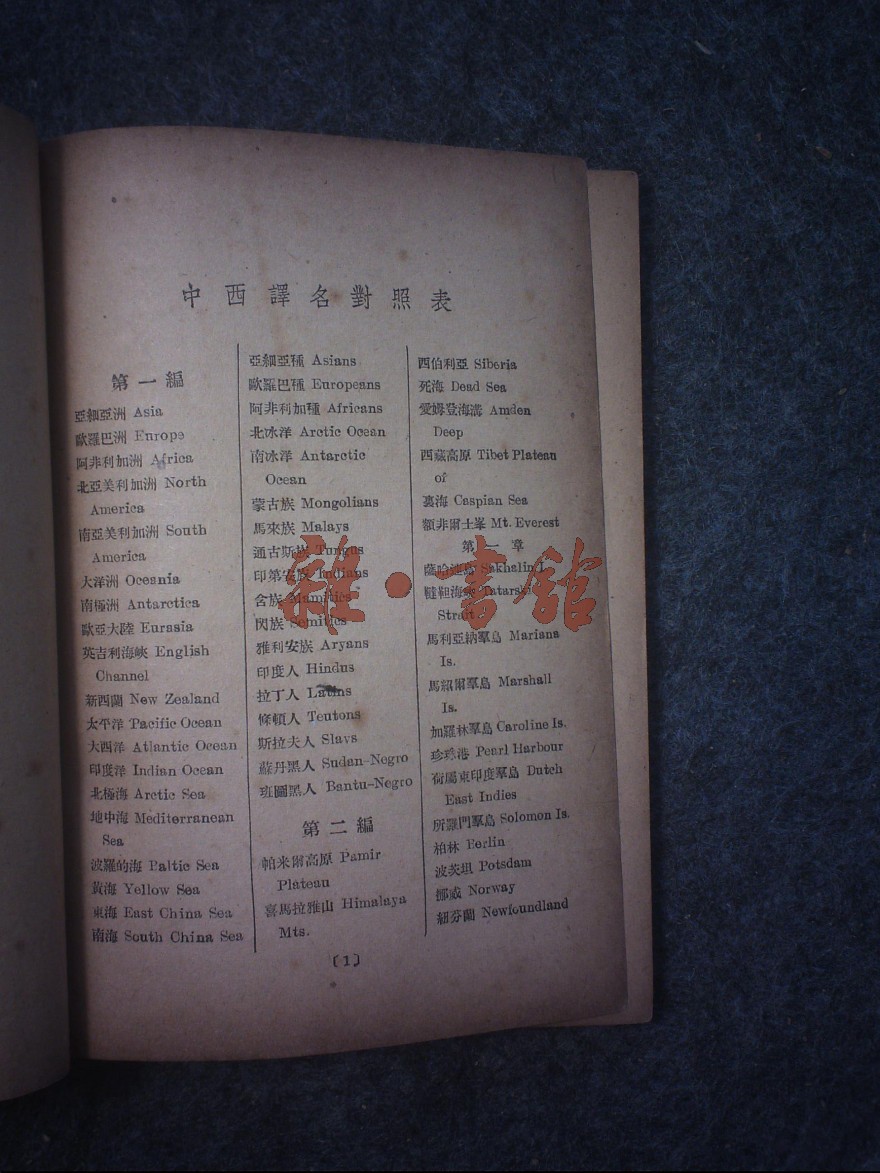 中西譯名對照表
第一編
亞細亞洲 Asia
歐羅巴洲 Europe
阿非利加洲 Africa
北亞美利加洲 North
America
南亞美利加洲 South
America
大洋洲 Oceania
南極洲 Antarctica
歐亞大陸 Eurasia
英吉利海峽 English
Channel
新西蘭 New Zealand
太平洋 Pacific Ocean
大西洋 Atlantic Ocean
印度洋 Indian Ocean
北極海 Arctic Sea
地中海 Mediterranean
Sea
波羅的海 Baltic Sea
黃海 Yellow Sea
東海 East China Sea
南海 South China Sea
亞細亞種 Asians
歐羅巴種 Europeans
阿非利加種 Africans
北冰洋 Arctic Ocean
南冰洋 Antarctic
Ocean
蒙古族 Mongolians
馬來族 Malays
通古斯族 Tungus
印第安族 Indians
含族 Hamitics
閃族 Semitics
雅利安族 Aryans
印度人 Hindus
拉丁人 Latins
條頓人 Teutons
斯拉夫人 Slavs
蘇丹黑人 Sudan-Negro
班圖黑人 Bantu-Negro
第二編
帕米爾高原 Pamir
Plateau
喜馬拉雅山 Himalaya
Mts.
西伯利亞 Siberia
死海 Dead Sea
愛姆登海溝 Amden
Deep
西藏高原 Tibet Plateau
of
裏海 Caspian Sea
額非爾士峯 Mt. Everest
第一章
薩哈連島 Sakhalin I.
韃靼海峽 Tatarski
Strait
馬利亞納羣島 Mariana
Is.
馬紹爾羣島 Marshall
Is.
加羅林羣島 Caroline Is.
珍珠港 Pearl Harbour
荷屬東印度羣島 Dutch
East Indies
所羅門羣島 Solomon Is.
柏林 Berlin
波茨坦 Potsdam
挪威 Norway
紐芬蘭 Newfoundland
(1)
雜·書館